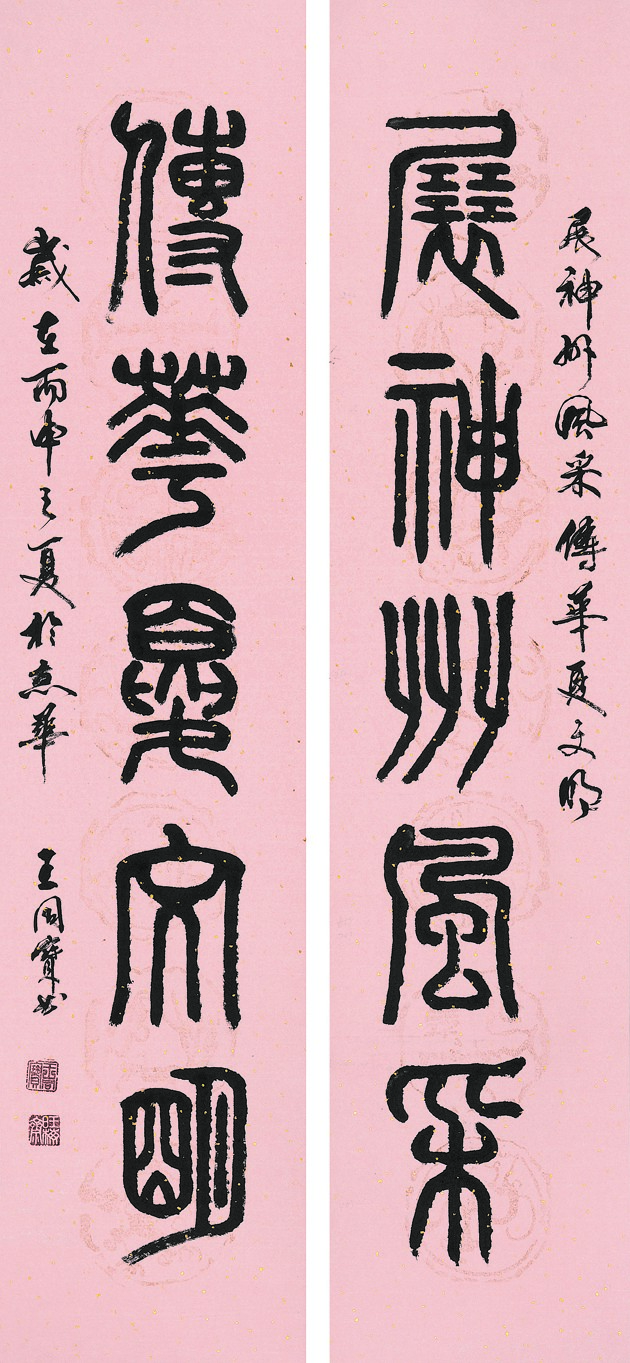 展神州風采傳華夏文明
展神州風采
傳華夏文明
歲在丙申之夏於京華
王同寶書